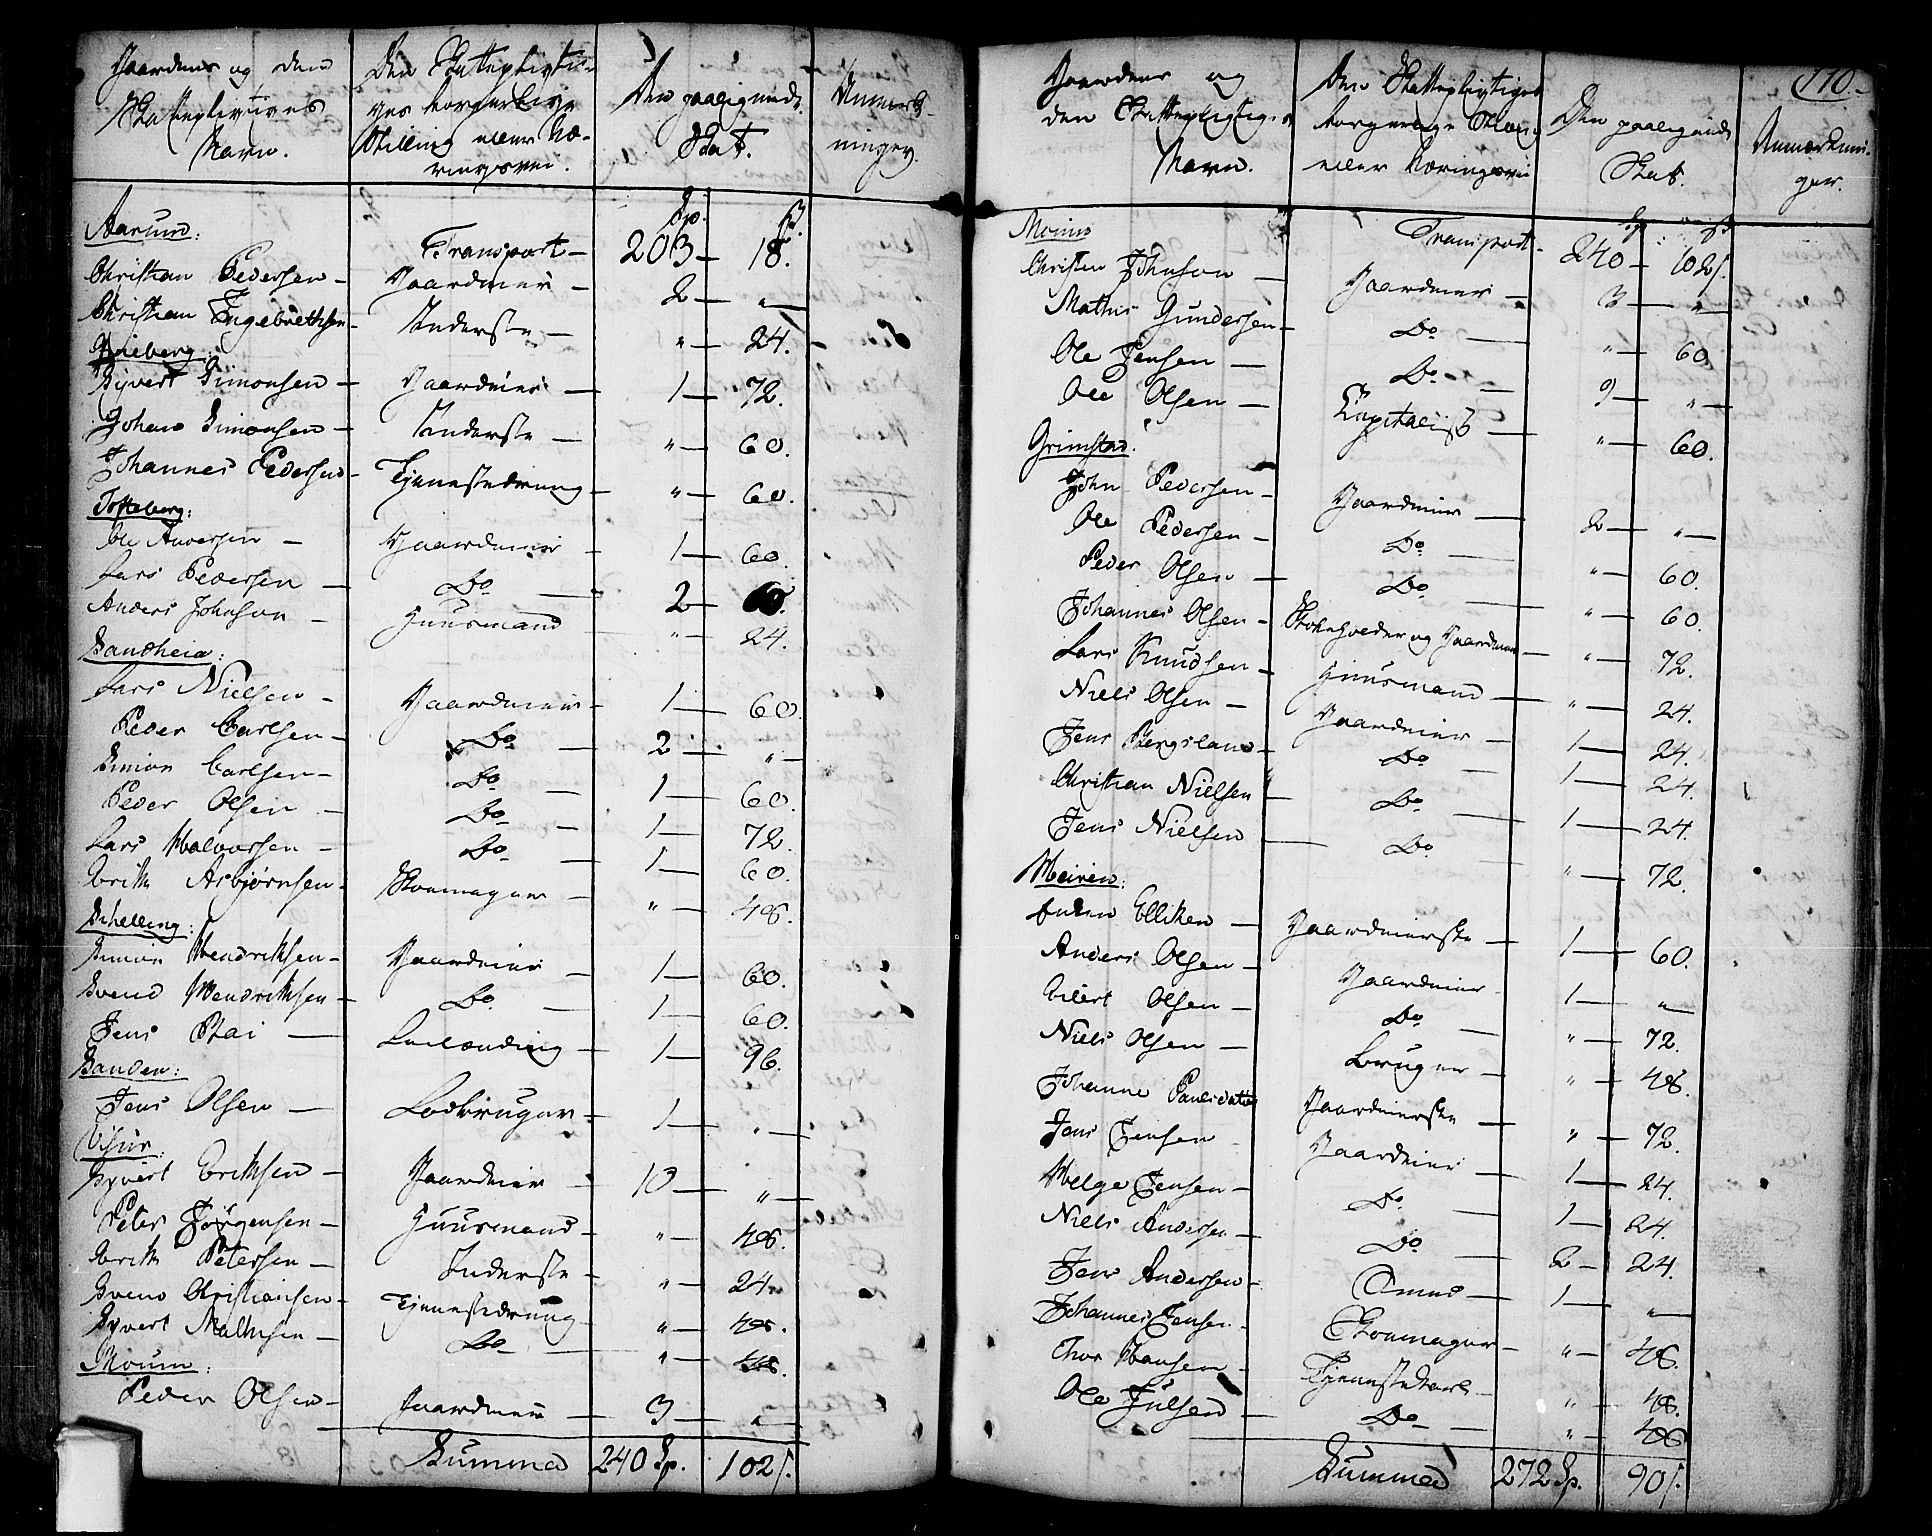 Gaardenes og den
Skattepligtiges
Navn.
Den Skattepligti-
ges borgerlige
Stilling eller Næ-
ringsvei.
Den paalignede
Skat.
Anmærk-
ninger.
Sp. ß.
Aarum: Transport — 203 — 18.
Christian Pedersen — Gaardeier — 2 — "
Christian Ingebrethsen — Inderste — " — 24.
Sivert Simonsen — Gaardeier — 1 — 72.
Johan Simonsen — Inderste — " — 60.
Johannes Pedersen — Tjenestedreng — " — 60.
Tofteberg:
Ole Andersen — Gaardeier — 1 — 60.
Lars Pedersen — Do — 2 —
Anders Johnson — Huusmand — " — 24.
Sandheia:
Lars Nielsen — Gaardeier — 1 — 60.
Peder Carlsen — Do — 2 — "
Simon Carlsen — Do — 1 — 60.
Peder Olsen — Do — 1 — 72.
Lars Halvorsen — Do — 1 — 60.
Erik Asbjørnsen — Skomager — " — 48.
Schelling:
Simon Hendriksen — Gaardeier — 1 — 60.
Svend Hendriksen — Do — 1 — 60.
Jens — 1 — 96.
Sanden:
Jens Olsen — Lodbruger — 1 — "
Viker:
Syvert Eriksen — Gaardeier — 10 — "
Peter Jørgensen — Huusmand — " — 48.
Erik Petersen — Inderste — " — 24.
Svend Christiansen — Tjenestedreng — " — 48.
Syvert Mathisen — Do — " — 48.
Moum:
Peder Olsen — Gaardeier — 3 — "
Summa 240 Sp. 102 ß.
170.
Gaardenes og
den Skattepligtiges
Navn.
Den Skattepligtiges
borgerlige Stilling
eller Næringsvei
Den paalignede
Skat.
Anmærknin-
ger.
Sp. ß.
Moum Transport — 240 — 102 ß.
Christen Johnson — Gaardeier — 3 — "
Mathis Gundersen — Do — " — 60.
Ole Jensen — Do — 9 — "
Ole Olsen — Kapitalist — " — 60.
Grimstad:
John Pedersen — Gaardeier — 2 — "
Ole Pedersen — Do — " — 60.
Peder Olsen — Do — " — 60.
Johannes Olsen — og Gaardmand — " — 72.
Lars Knudsen — Huusmand — " — 24.
Niels Olsen — Gaardeier — 1 — 24.
Jens Bergsland — Do — 1 — 24.
Christian Nielsen — Do — 1 — 24.
Jens Nielsen — Do — " — 72.
Heiren:
Enken Elliken — Gaardeierske — 1 — 60.
Anders Olsen — Gaardeier — 1 — "
Eilert Olsen — Do — " — 72.
Niels Olsen — Bruger — " — 48.
Johanne Paulsdatter Gaardeierske — " — 72.
Jens Jensen — Gaardeier — 1 — 24.
Helge Jensen — Do — 1 — 24.
Niels Andersen — Do — 2 — 24.
Jens Andersen — 1 — "
Johannes Jensen — Skomager — " — 48.
Thor Hansen — Tjenestekarl — " — 48.
Ole Julsen — Do — " — 48
Summa 272 Sp. 90 ß.